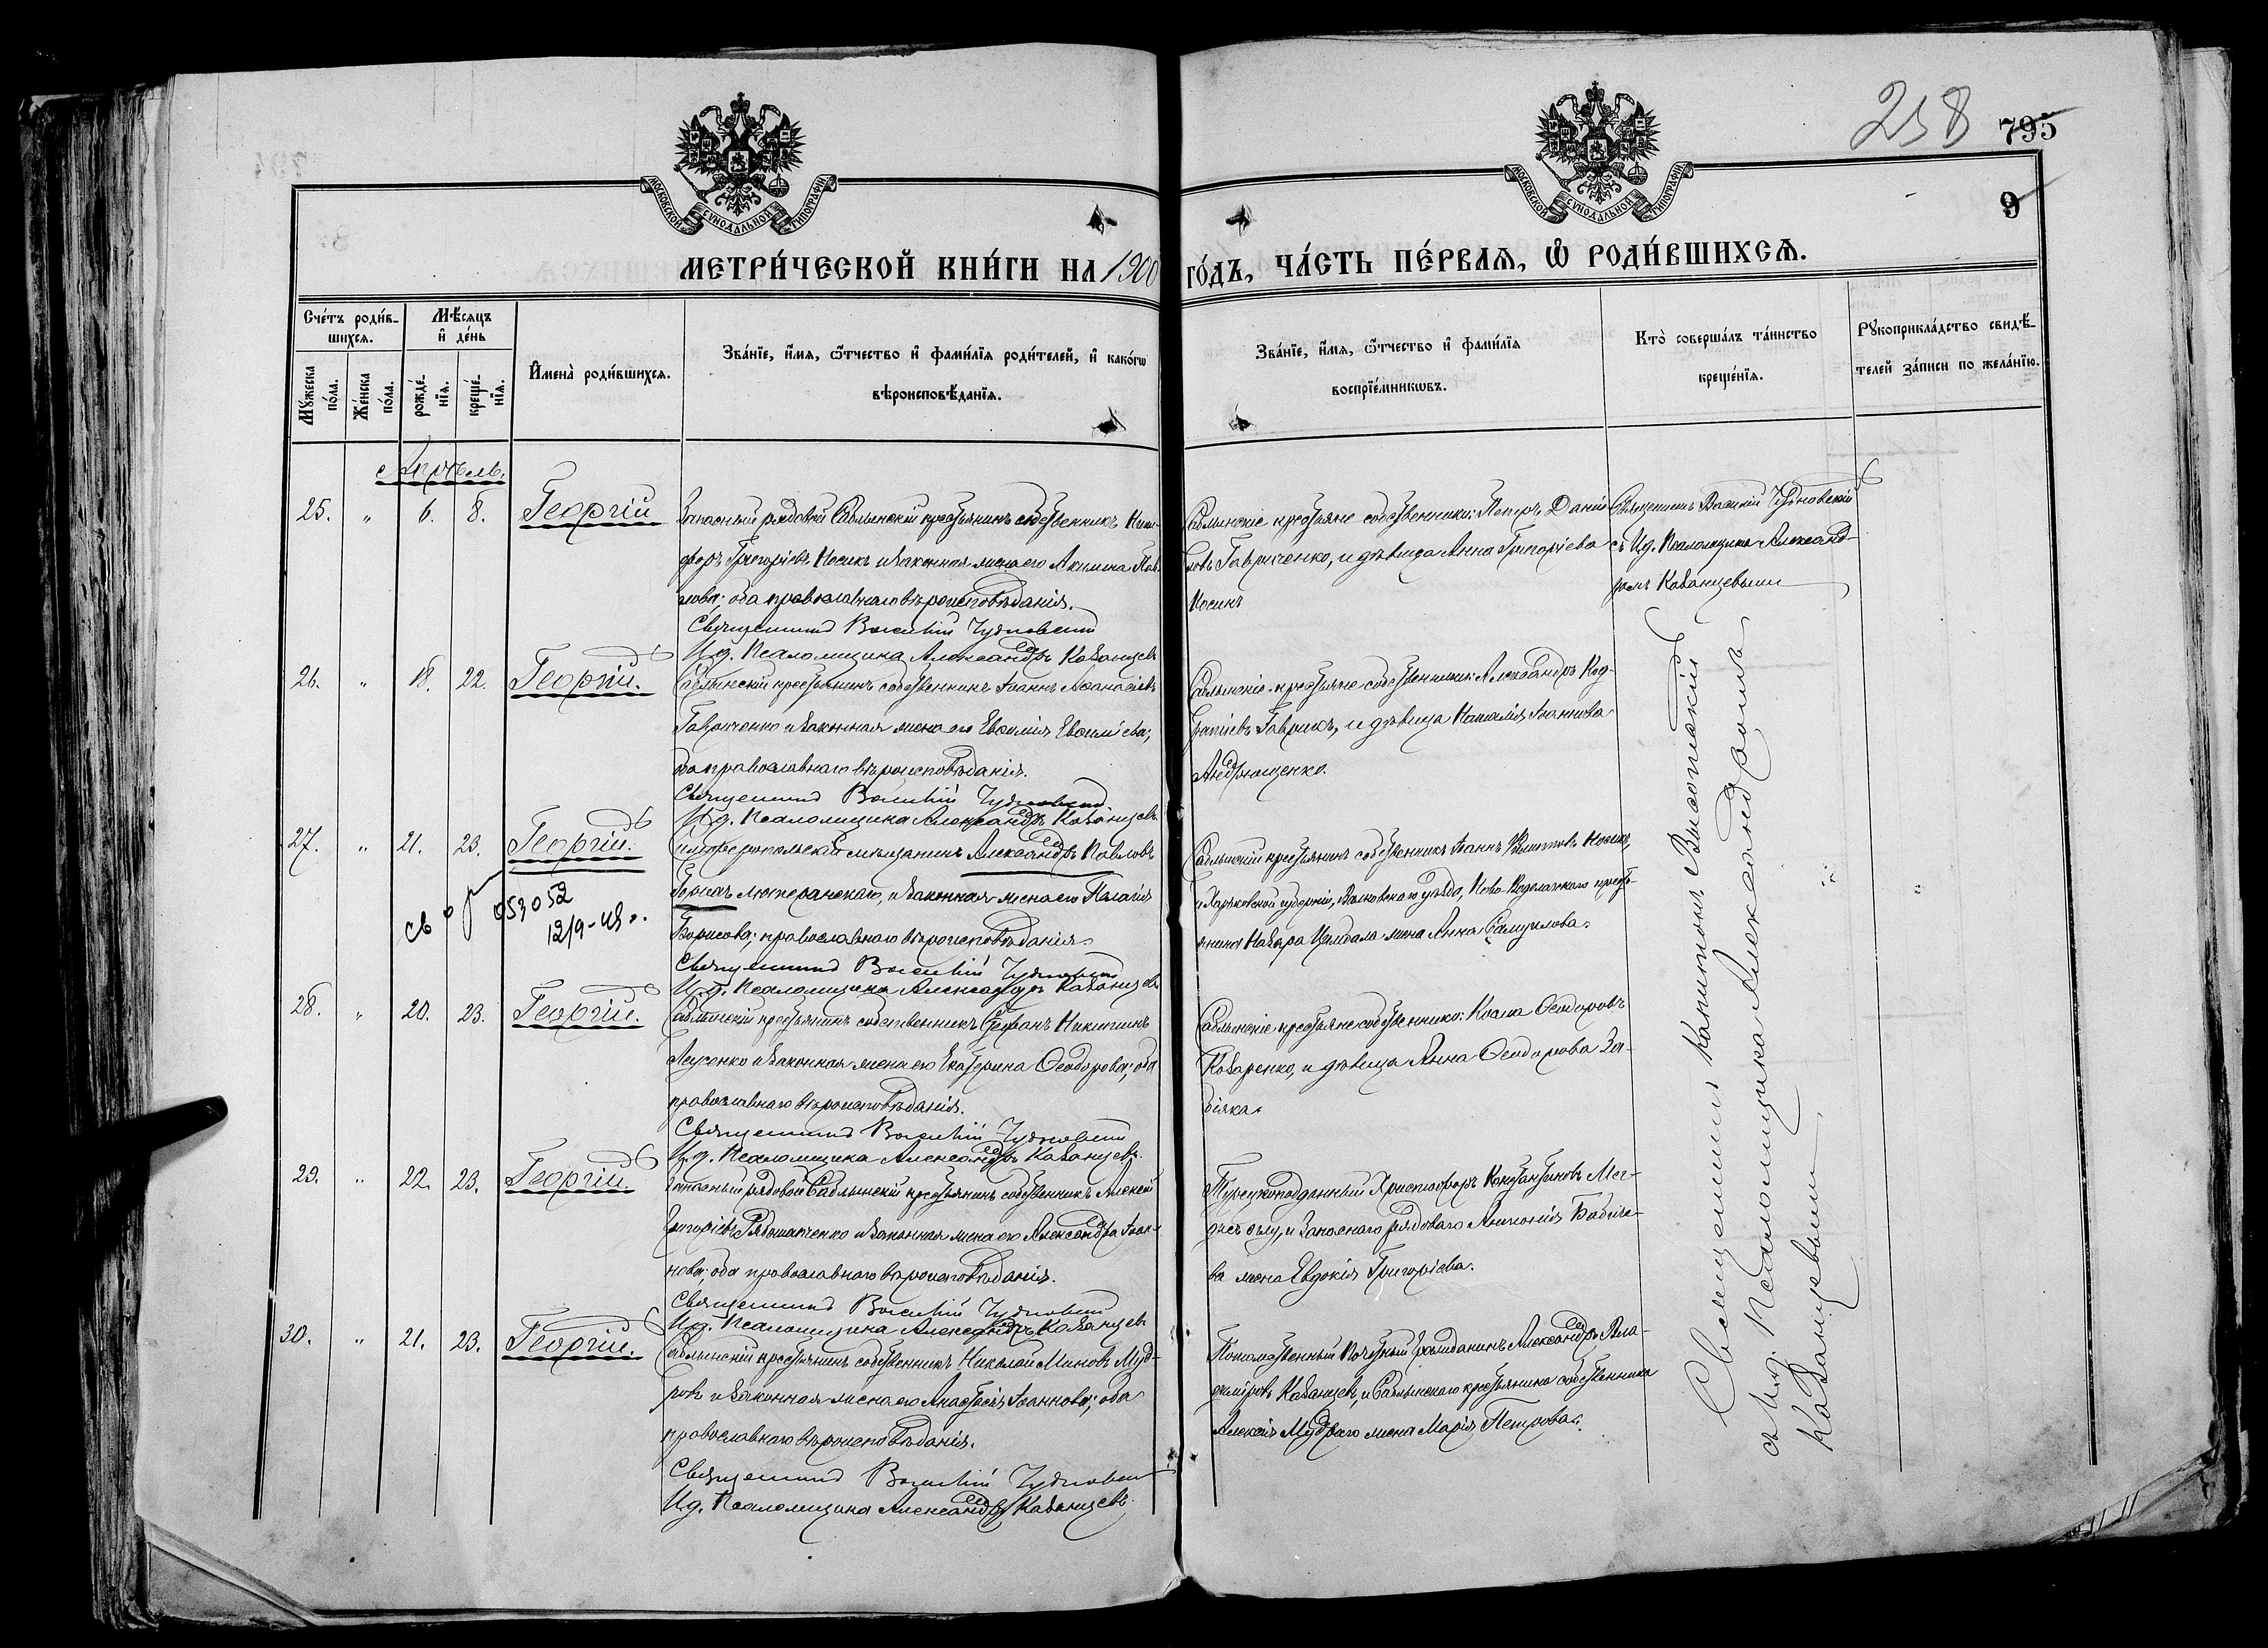 258 795
9
МОСКОВСКОЙ СѴНОДАЛЬНОЙ ТИПОГРАФІИ
МОСКОВСКОЙ СѴНОДАЛЬНОЙ ТИПОГРАФІИ
МЕТРИ́ЧЕСКОЙ КНИ́ГИ НА 1900 ГО́ДЪ, ЧА́СТЬ ПЕ́РВАѦ, Ѽ РОДИ́ВШИХСѦ.
Сче́тъ роди́в-
шихсѧ.
Мꙋ́жеска по́ла.
Же́нска по́ла.
Мѣ́сѧцъ и҆ де́нь
рожде́-нїѧ.
креще́-нїѧ.
И҆мена̀ роди́вшихсѧ.
Зва́нїе, и҆́мѧ, ѻ҆́тчество и҆ фами́лїѧ роди́телей, и҆ како́гѡ
вѣроисповѣ́данїѧ.
Зва́нїе, и҆́мѧ, ѻ҆́тчество и҆ фами́лїѧ
воспрїе́мникѡвъ.
Кто̀ соверша́лъ та́инство
креще́нїѧ.
Рꙋкоприкла́дство свидѣ́-
телей за́писи по жела́нїю.
Апрѣль.
25. " 6. 8. Георгій
Запасный рядовой Саблынскій крестьянинъ собственникъ Ники-
форъ Григоріевъ Носикъ и законная жена его Акилина Пав-
лова; оба православнаго вѣроисповѣданія.
Священникъ Василій Чудновскій
И.д. Псаломщика Александръ Казанцевъ
Саблынскіе крестьяне собственники: Петръ Даніи-
ловъ Гавриченко, и дѣвица Анна Григоріева
Носикъ
Священникъ Василій Чудновскій
съ И.д. Псаломщика Александ-
ромъ Казанцевымъ
26. " 18. 22. Георгій.
Саблынскій крестьянинъ собственникъ Іоаннъ Аѳанасіевъ
Гавриченко и законная жена его Евѳимія Евѳиміева;
оба православнаго вѣроисповѣданія.
Священникъ Василій Чудновскій
И.д. Псаломщика Александръ Казанцевъ
Саблынскіе крестьяне собственники: Александръ Код-
ратіевъ Гаврикъ, и дѣвица Наталія Іоаннова
Андрющенко.
27. " 21. 23. Георгій.
Симферопольскій мѣщанинъ Александръ Павловъ
лютеранскаго, и законная жена его Пелагія
Борисова; православнаго вѣроисповѣданія.
Священникъ Василій Чудновскій
И.д. Псаломщика Александръ Казанцевъ
053052
12/9-48 г.
Саблынскій крестьянинъ собственникъ Іоаннъ Носикъ,
и Харьковской губерніи, Валковскаго уѣзда, Ново-Водолажского кресть-
янина Назара жена Анна Самуилова.
28. " 20. 23. Георгій.
Саблынскій крестьянинъ собственникъ Стефанъ Никитинъ
Леусенко и законная жена его Екатерина Ѳеодорова; оба
православнаго вѣроисповѣданія.
Священникъ Василій Чудновскій
И.д. Псаломщика Александръ Казанцевъ
Саблынскіе крестьяне собственники: Косма Ѳеодоровъ
Коваренко, и дѣвица Анна Ѳеодорова За-
біяка.
29. " 22. 23. Георгій.
Запасный рядовой Саблынскій крестьянинъ собственникъ Алексій
Григоріевъ Рябошапченко и законная жена его Александра Іоан-
нова; оба православнаго вѣроисповѣданія.
Священникъ Василій Чудновскій
И.д. Псаломщика Александръ Казанцевъ
Турецкоподданный Христофоръ Константиновъ
и запаснаго рядоваго Антонія Бабиче-
ва жена Евдокія Григоріева.
30. " 21. 23. Георгій.
Саблынскій крестьянинъ собственникъ Николай Миновъ Муд-
ровъ и законная жена его Анастасія Іоаннова; оба
православнаго вѣроисповѣданія.
Священникъ Василій Чудновскій
И.д. Псаломщика Александръ Казанцевъ
Потомственный Почетный гражданинъ Александръ Вла-
диміровъ Казанцевъ, и Саблынскаго крестьянина собственника
Алексія Мудраго жена Марія Петрова.
Священникъ Капитонъ Высотскій
съ И.д. Псаломщика Александромъ
Казанцевымъ